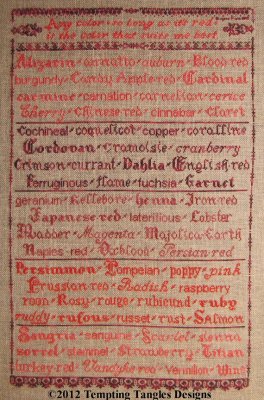 Any color so long as it's red
is the color that suits me best
Alizarin annatto auburn Blood red
burgundy Candy Apple red Cardinal
carmine carnation carnelian cerise
Cherry Chinese red cinnabar Claret
Cochineal coquelicot copper coralline
Cordovan Cramoisie cranberry
Crimson currant Dahlia English red
Ferruginous flame fuchsia Garnet
geranium Hellebore henna Iron red
Japanese red lateritious Lobster
Madder Magenta Majolica Earth
Naples red Oxblood Persian red
Persimmon Pompeian poppy pink
Prussian red Radish raspberry
roan Rosy rouge rubicund ruby
ruddy rufous russet rust Salmon
Sangria sanguine Scarlet sienna
sorrel stammel Strawberry Titian
turkey red Vandyke red Vermilion Wine
©2012 Tempting Tangles Designs